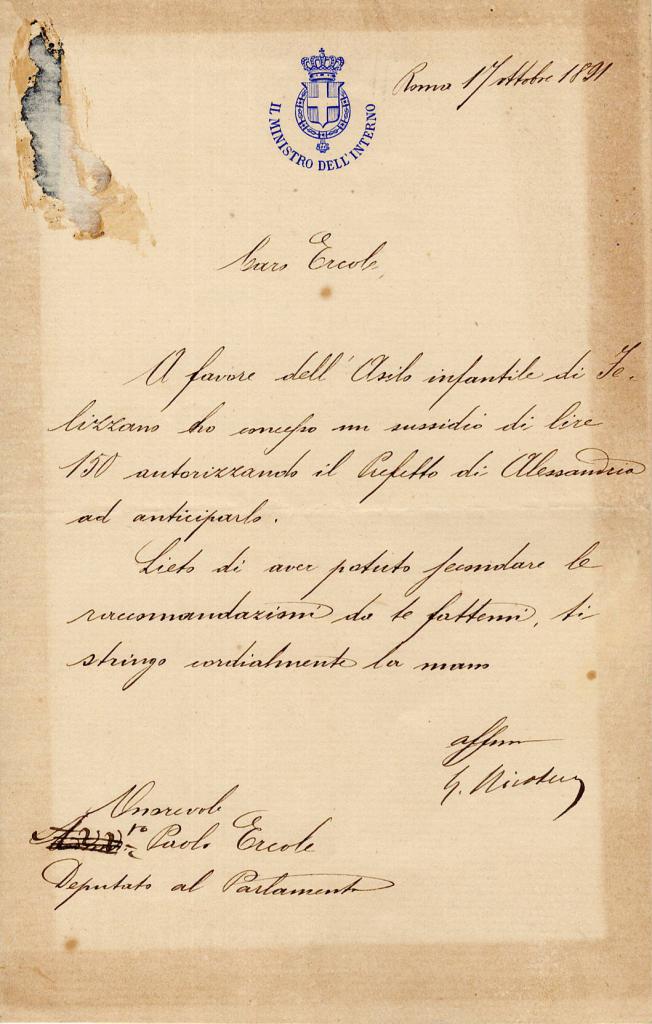 Roma 17 ottobre 1891
IL MINISTRO DELL'INTERNO
Caro Ercole,
A favore dell'Asilo infantile di Fe-
lizzano ho concesso un sussidio di lire
150 autorizzando il Prefetto di Alessandria
ad anticiparlo.
Lieto di aver potuto secondare le
raccomandazioni da te fattemi, ti
stringo cordialmente la mano
affmo
G. Nicotera
Onorevole
Paolo Ercole
Deputato al Parlamento